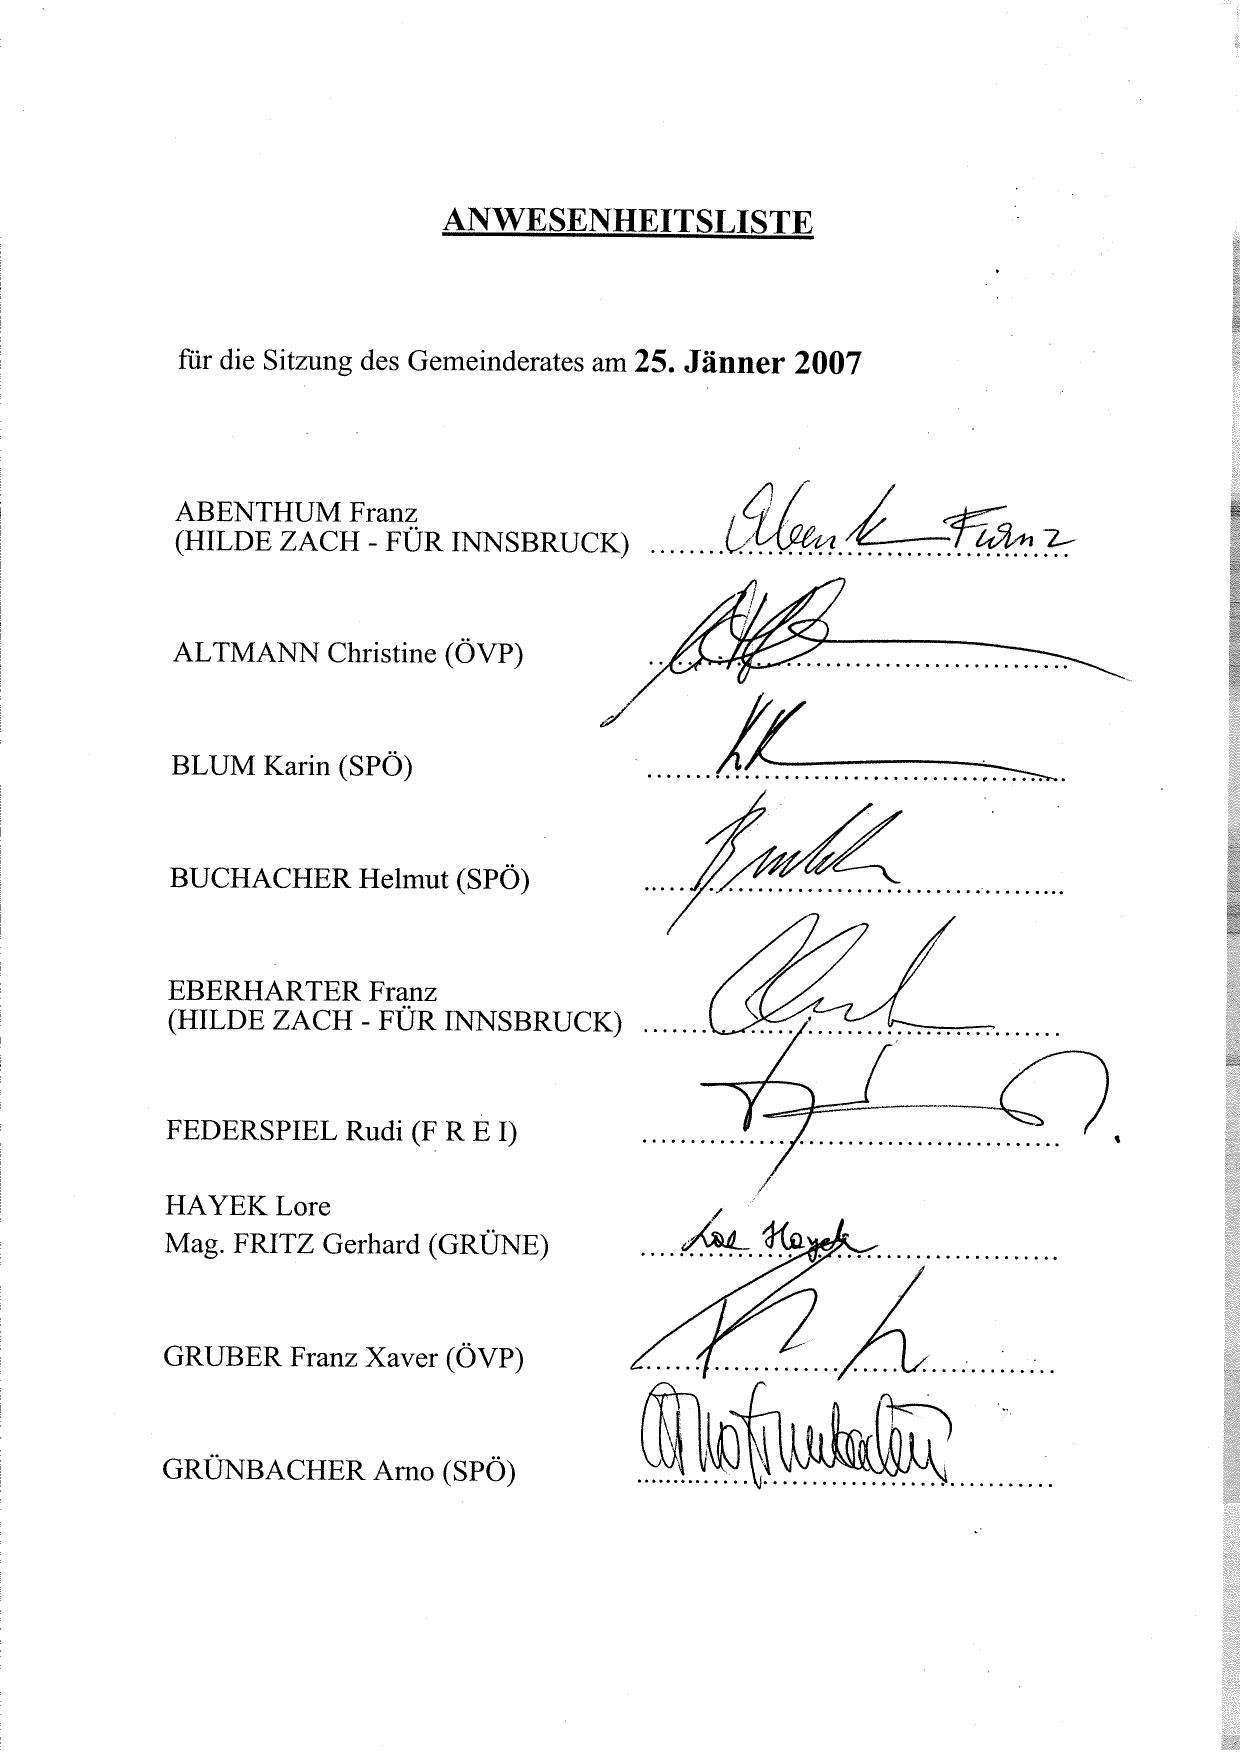 ANWESENHEITSLISTE
für die Sitzung des Gemeinderates am 25. Jänner 2007
ABENTHUM Franz
(HILDE ZACH - FÜR INNSBRUCK) ....... Franz
ALTMANN Christine (ÖVP)
BLUM Karin (SPÖ)
BUCHACHER Helmut (SPÖ)
EBERHARTER Franz
(HILDE ZACH - FÜR INNSBRUCK)
FEDERSPIEL Rudi (F R E I)
HAYEK Lore
Mag. FRITZ Gerhard (GRÜNE) Lore Hayek
GRUBER Franz Xaver (ÖVP)
GRÜNBACHER Arno (SPÖ) Arno Grünbacher